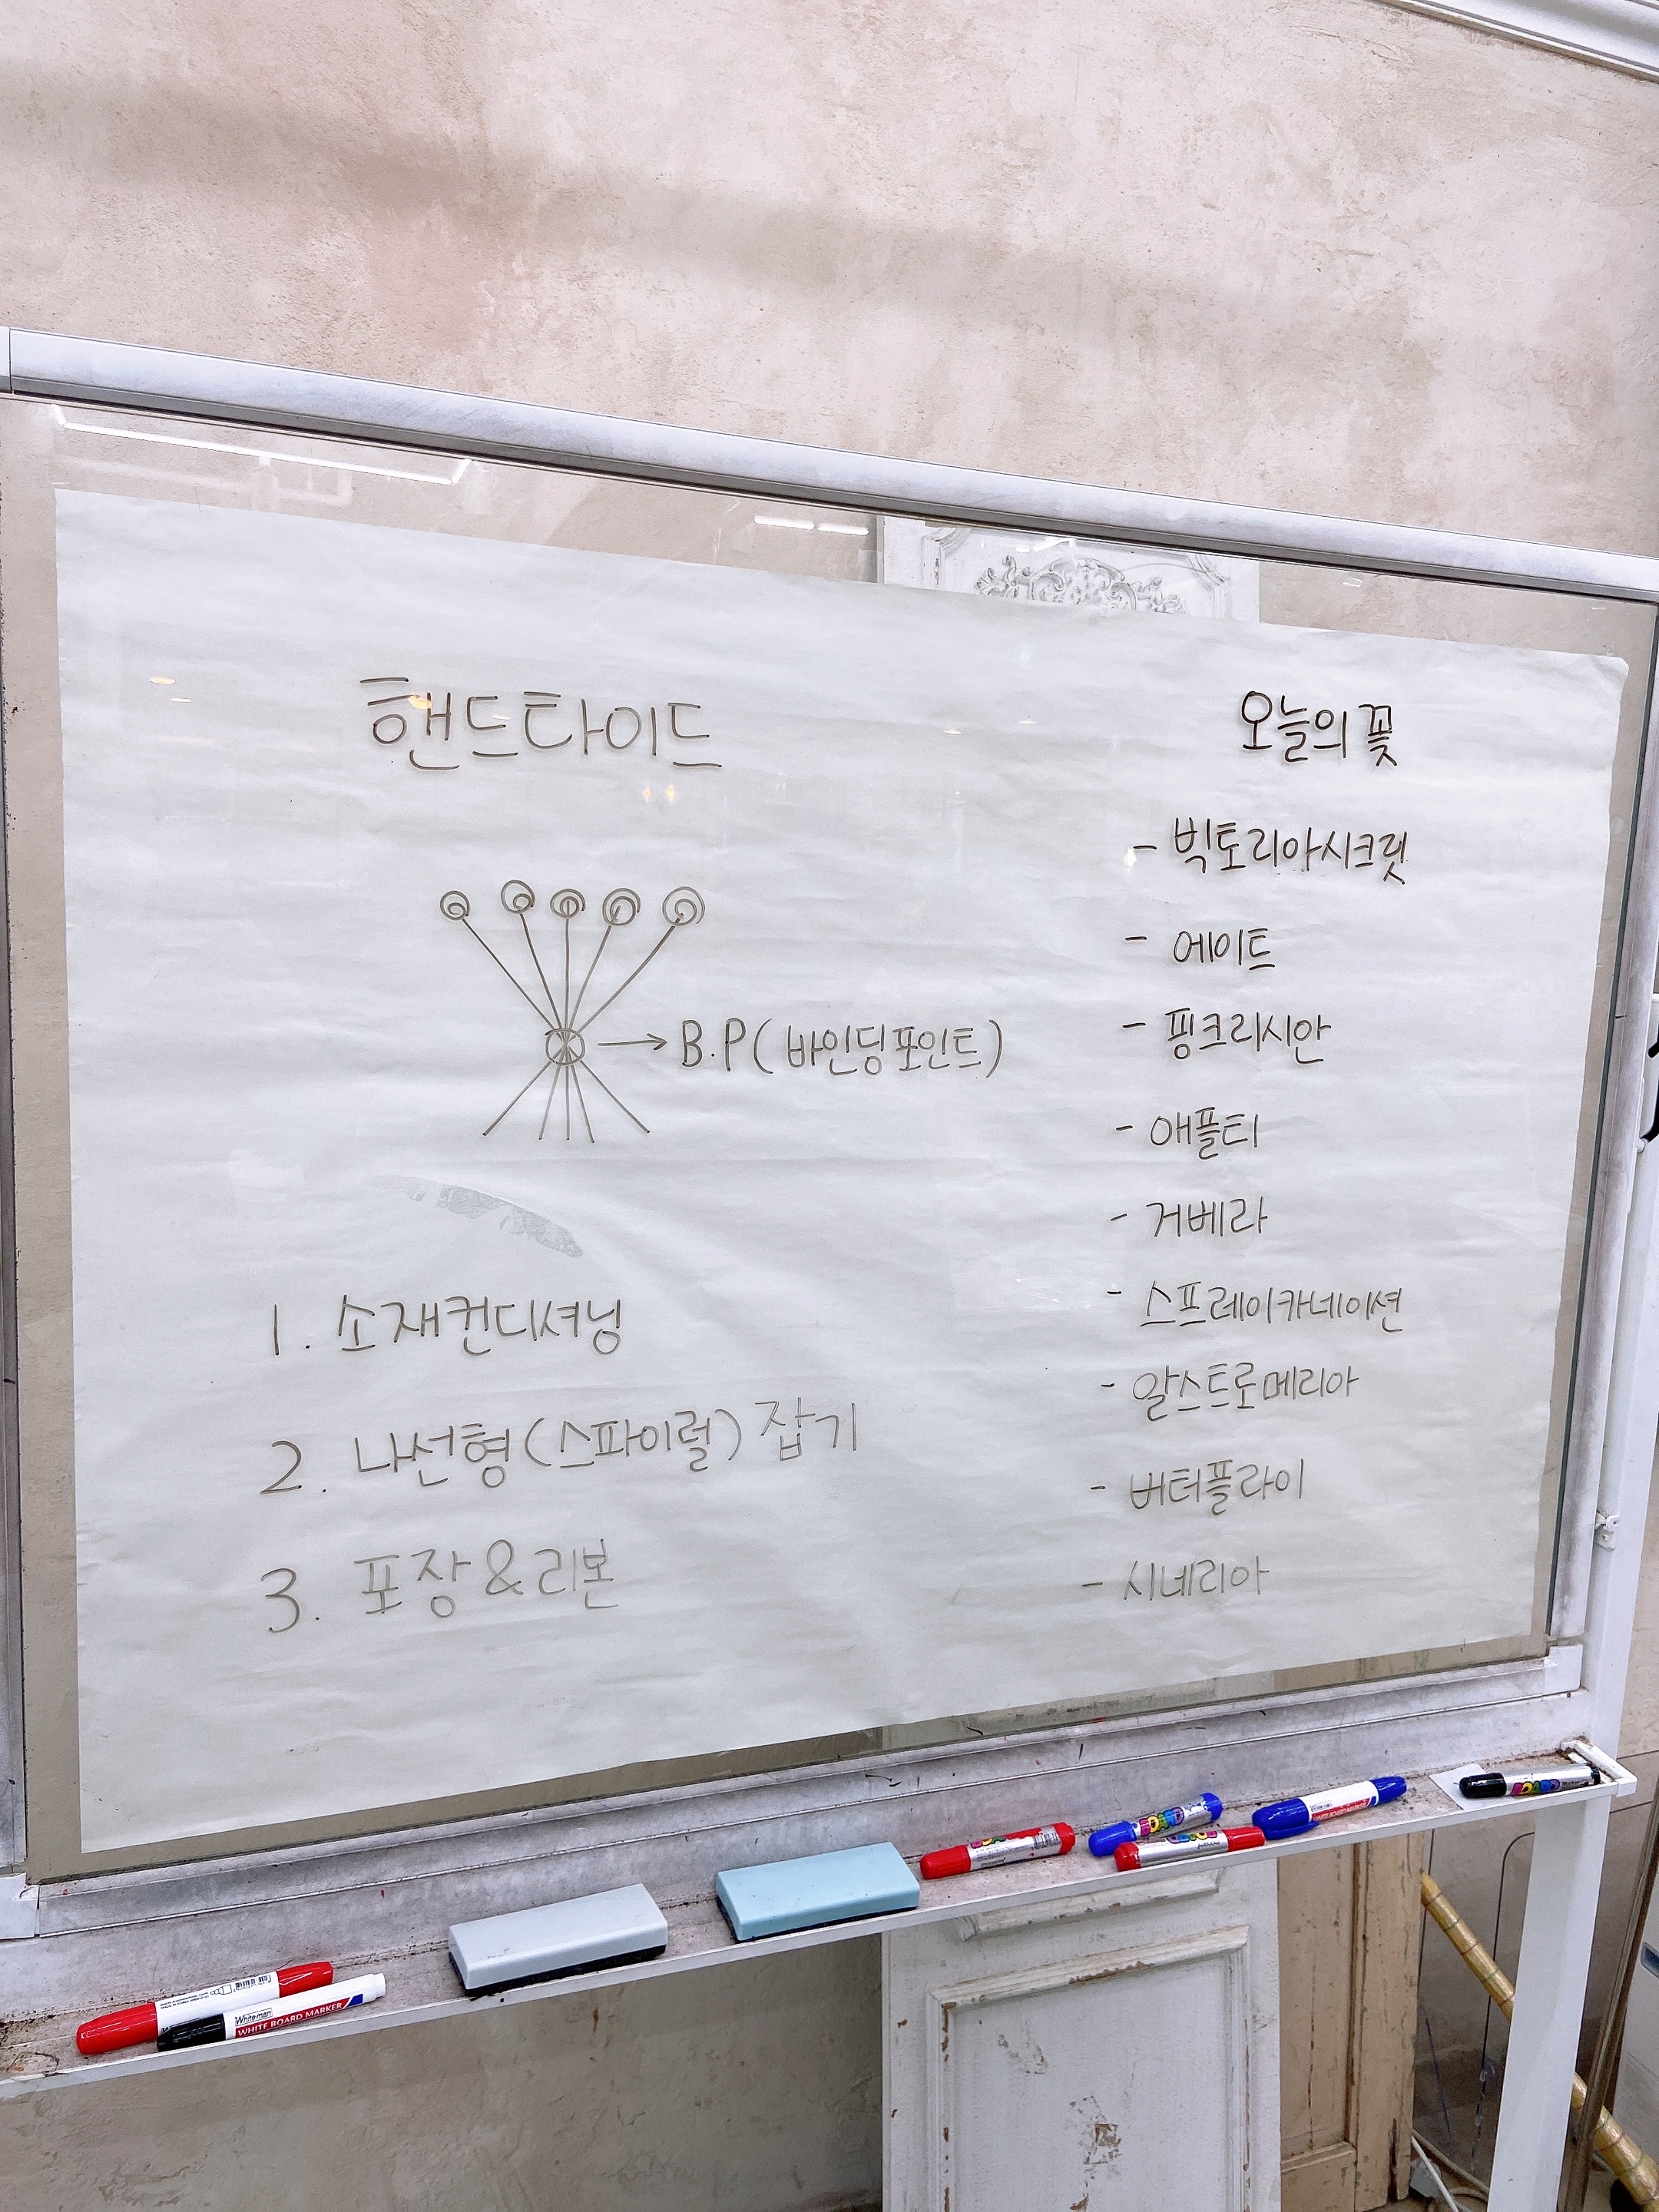 핸드타이드
B.P(바인딩포인트)
1. 소재컨디셔닝
2. 나선형(스파이럴) 잡기
3. 포장&리본
오늘의 꽃
- 빅토리아시크릿
- 에이트
- 핑크리시안
- 애플티
- 거베라
- 스프레이카네이션
- 알스트로메리아
- 버터플라이
- 시네리아
Whiteman
WHITE BOARD MARKER
BOARD